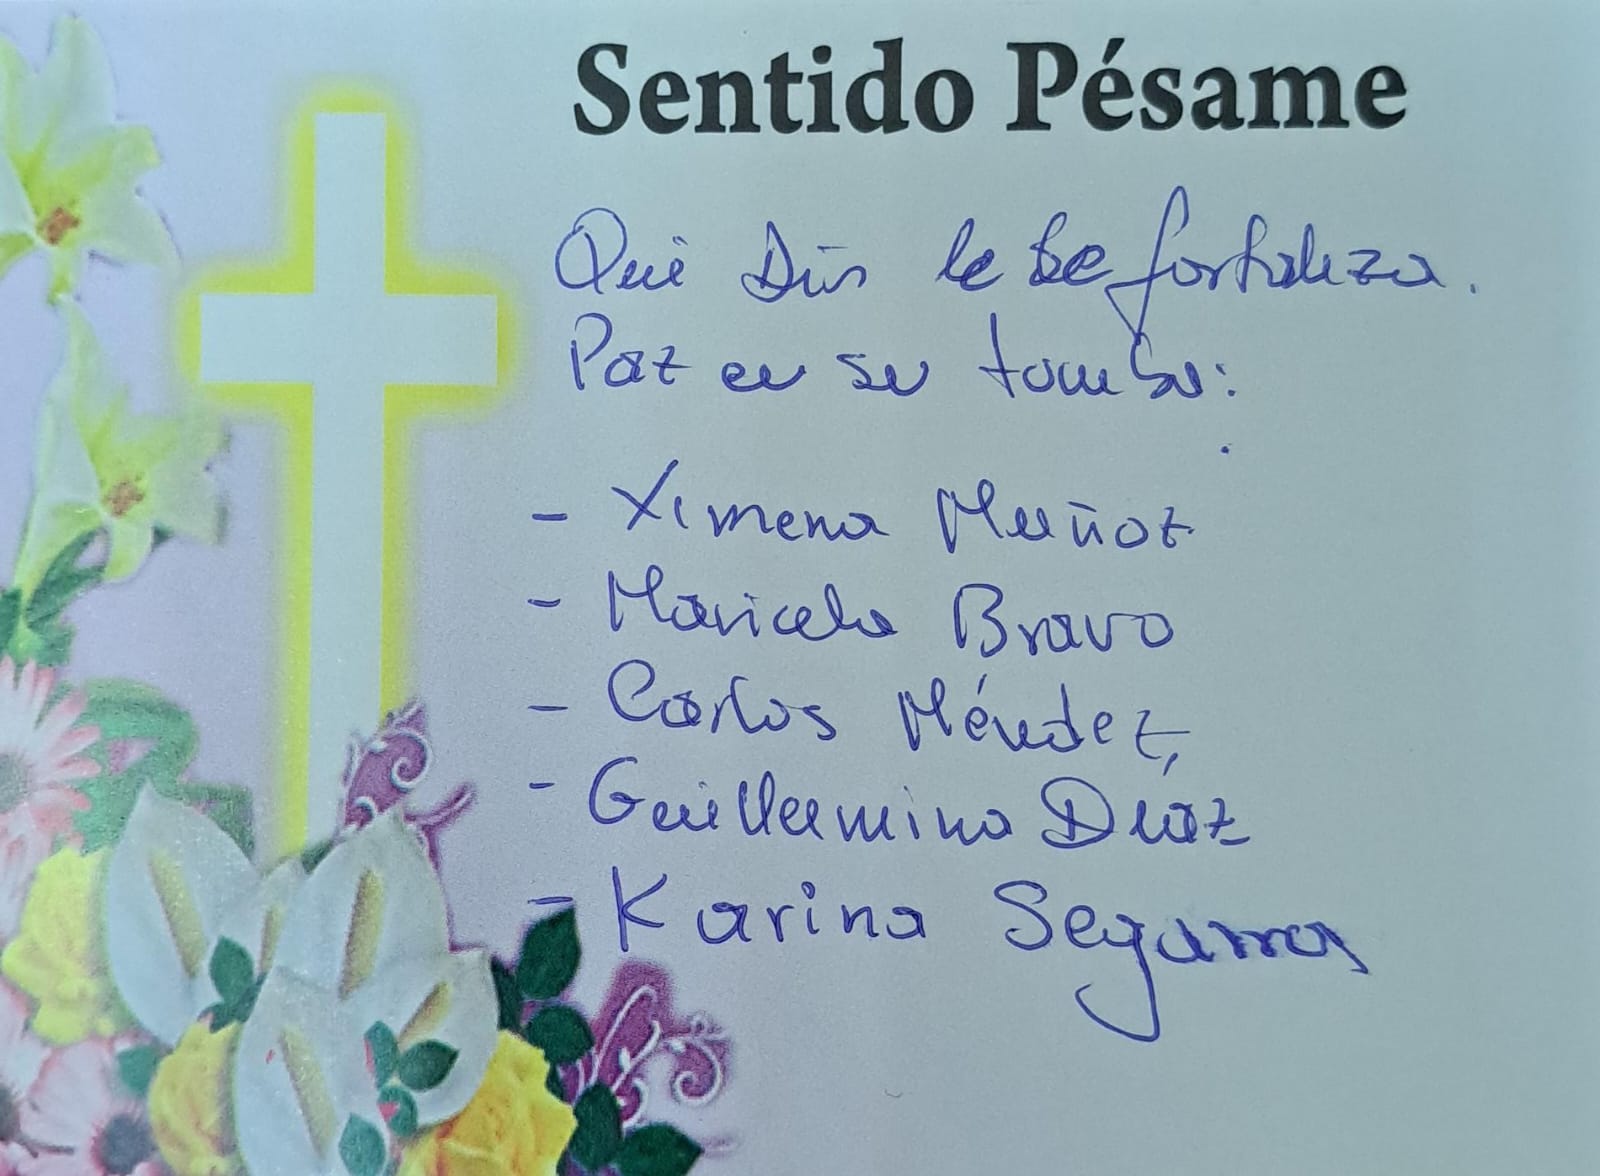 Sentido Pésame
Que Dios le de fortaleza.
Paz en su tumba:
- Ximena Muñoz
- Maricela Bravo
- Carlos Méndez,
- Guillermina Díaz
- Karina Segarra